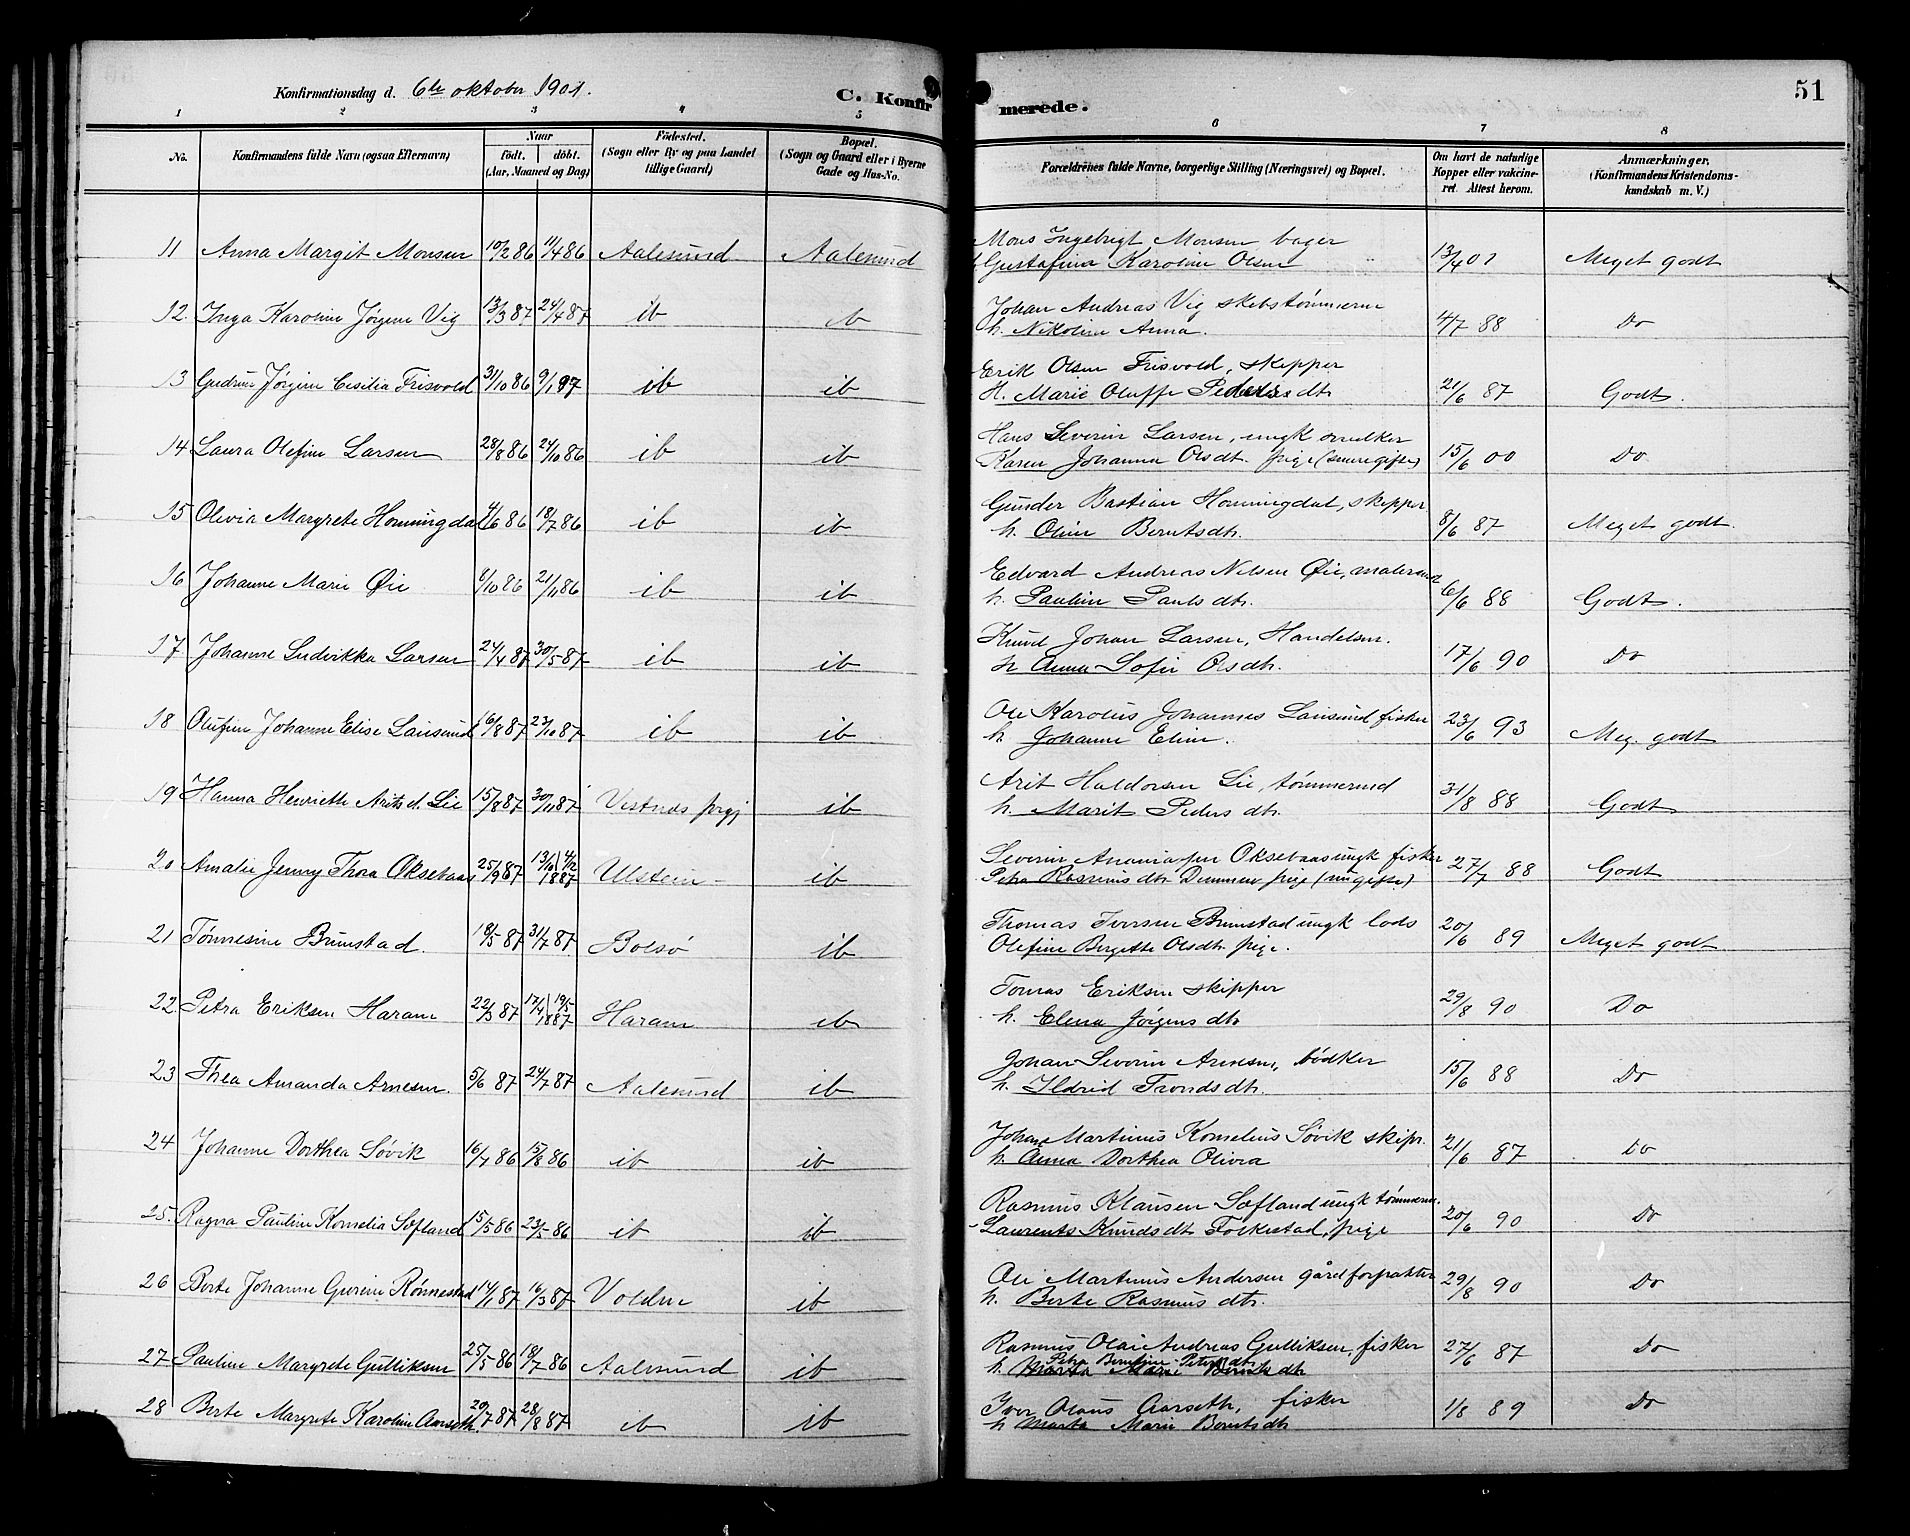 Konfirmationsdag d. 6te oktober 1901.
C. Konfirmerede.
51
1 2 3 4 5 6 7 8
No.
Konfirmandens fulde Navn (ogsaa Efternavn)
Naar
födt. döbt.
(Aar, Maaned og Dag)
Födested.
(Sogn eller By og paa Landet
tillige Gaard)
Bopæl.
(Sogn og Gaard eller i Byerne
Gade og Hus-No.
Forældrenes fulde Navne, borgerlige Stilling (Næringsvei) og Bopæl.
Om havt de naturlige
Kopper eller vakcine-
ret. Attest herom.
Anmærkninger.
(Konfirmandens Kristendoms-
kundskab m. V.)
11 Anna Margit Monsen 10/2 86 11/4 86 Aalesund Aalesund
Mons Ingebrigt Monsen bager
Gustafina Karoline Olsen 13/4 01 Meget godt
12. Inga Karoline Jørgine Vig 13/3 87 24/4 87 ib ib
Johan Andreas Vig skibstømmerm
h. Nikoline Anna. 4/7 88 Do
13 Gudrun Jørgine Cesilia Frisvold 31/10 86 9/1 87 ib ib
Erik Olsen Frisvold, skipper
H. Marie Oluffe Pedersdtr 21/6 87 Godt.
14 Laura Olefine Larsen 28/8 86 24/10 86 ib ib
Hans Severin Larsen, ungk snedker
Karen Johanna Olsdt. pige 15/6 00 Do
15 Olivia Margrete Honningdal 4/6 86 18/7 86 ib ib
Gunder Bastian Honningdal, skipper
h. Oline Berntsdtr. 8/6 87 Meget godt.
16 Johanne Marie Øie 9/10 86 21/11 86 ib ib
Edvard Andreas Nilsen Øie, malersvd
h. Pauline Paulsdtr. 6/6 88 Godt.
17 Johanne Ludvikka Larsen 24/4 87 30/5 87 ib ib
Knud Johan Larsen, Handelsm.
h Anna Sofie Olsdtr. 17/6 90 Do
18 Olufine Johanne Elise Lausund 16/8 87 23/10 87 ib ib
Ole Karolus Johannes Lausund fisker
h. Johanne Eline. 23/6 93 Meg. godt
19 Hanna Henriette Aritsd. Lie 15/8 87 30/10 87 Vestnes prgj ib
Arit Haldorsen Lie, tømmermd
h. Marit Pedersdtr. 31/8 88 Godt
20 Amalie Jenny Thora Oksebaas 25/9 87 13/10 4/12 1887 Ulstein ib
Severin Ananiassen Oksebaas ungk fisker
Petra Rasmusdtr Dimmen pige (ungifte) 27/7 88 Godt
21 Tønnesine Brunstad. 18/5 87 31/7 87 Bolsø ib
Thomas Iversen Brunstad ungk lods
Olefine Bergitte Olsdtr. pige. 20/6 89 Meget godt
22. Petra Eriksen Haram 22/3 87 17/4 19/5 1887 Haram ib
Tomas Eriksen skipper
h. Elena Jørgensdtr 29/8 90 Do
23 Thea Amanda Arnesen. 5/6 87 24/7 87 Aalesund ib
Johan Severin Arnesen, bødker
h. Ildrid Trondsdtr. 15/6 88 Do
24 Johanne Dorthea Søvik 16/7 86 15/8 86 ib ib
Johan Martinus Kornelius Søvik skipr.
h. Anna Dorthea Olivia 21/6 87 Do
25. Ragna Pauline Kornelia Sætland 15/5 86 23/5 86 ib ib
Rasmus Klausen Sætland ungk tømmerm.
Laurents Knudsdtr Folkestad, pige 20/6 90 Do
26 Berte Johanne Gurine Rønnestad 14/1 87 16/3 87 Volden ib
Ole Martinus Andersen gårdforpakter
h. Berte Rasmusdtr. 29/8 90 Do
27 Pauline Margrete Gulliksen 25/5 86 18/7 86 Aalesund ib
Rasmus Olai Andreas Gulliksen, fisker
Petra Berntine Petersdtr
h. Marta Marie Berntsdtr 27/6 87 Do
28 Berte Margrete Karoline Aarseth. 29/7 87 28/8 87 ib ib
Iver Olaus Aarseth, fisker
h Marta Marie Berntsdtr 1/8 89 Do